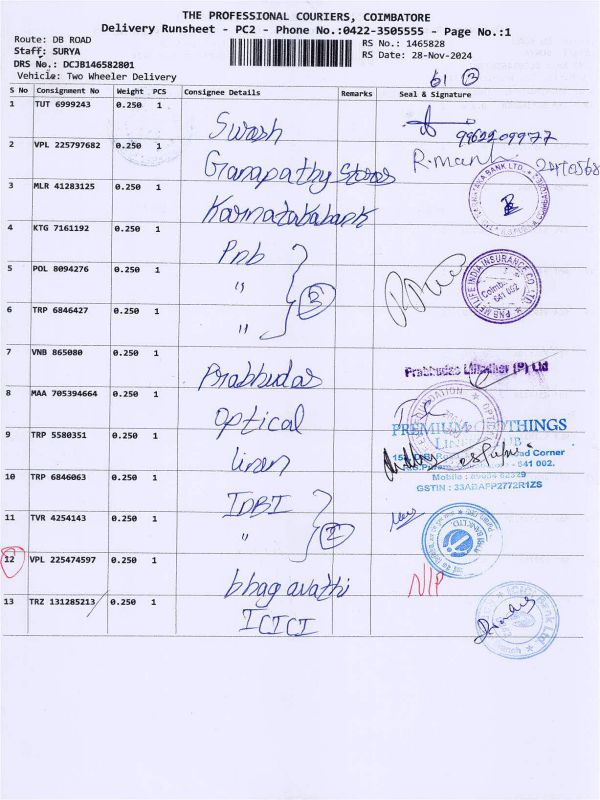 THE PROFESSIONAL COURIERS, COIMBATORE
Delivery Runsheet - PC2 - Phone No.:0422-3505555 - Page No.:1
Route: DB ROAD
RS No.: 1465828
Staff: SURYA
RS Date: 28-Nov-2024
DRS No.: DCJB146582801
Vehicle: Two Wheeler Delivery
S No Consignment No Weight PCS Consignee Details Remarks Seal & Signature
1 TUT 6999243 0.250 1 Swash
2 VPL 225797682 0.250 1 Ganapathy Stores R.manh
3 MLR 41283125 0.250 1 Karnatakabank
4 KTG 7161192 0.250 1 Pnb
5 POL 8094276 0.250 1 "
3
PNB METLIFE INDIA INSURANCE CO. LTD.
Coimb
641 002
6 TRP 6846427 0.250 1 "
7 VNB 865080 0.250 1 Prabhudas Prabhudas Lilladher (P) Ltd
8 MAA 705394664 0.250 1 Optical
PREMIUM CLOTHINGS
LINEN CLUB
9 TRP 5580351 0.250 1 linen
Corner
641 002.
Mobile :
GSTIN : 33ADAFP2772R1ZS
10 TRP 6846063 0.250 1 IDBI
11 TVR 4254143 0.250 1 "
2
12 VPL 225474597 0.250 1 bhagavathi N/P
13 TRZ 131285213 0.250 1 ICICI
ICICI Bank Ltd